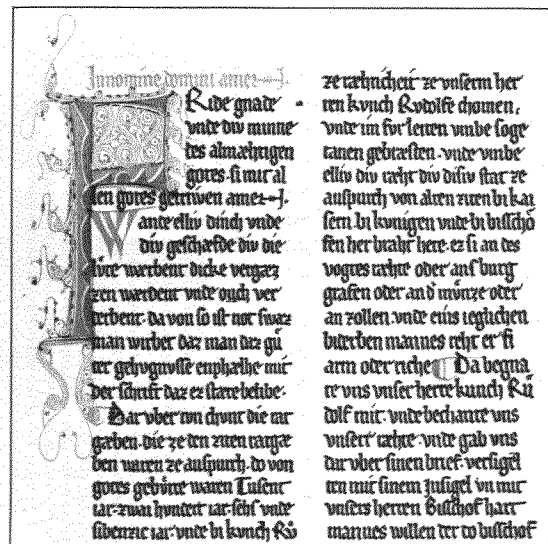 In nomine domini amen.
Ride gnade
vnde div minne
des almæhtigen
gotes. si mit al
len gotes getriven amen.
Wande elliv dinch vnde
div geschæfde div die
lṽte werbent dicke vergæz
zen werdent vnde ouch ver
derbent. da von so ist not swaz
man wirbet daz man daz gů
ter gehvgnvsse enphælhe mit
der schrift daz ez stæte belibe.
Dar vber tvn chvnt die rat
gæben. die ze den ziten ratgæ
ben waren ze auspurch. do von
gotes gebṽrte waren Tusent
iar. zwai hundert iar. sehs vnde
sibenzic iar. vnde bi kvnch Rů
ze ræhticheit ze vnserm her
ren kvnch Rvdolfe chomen.
vnde im fvr leiten vmbe soge
tanen gebræsten. vnde vmbe
elliv div ræht div disiv stat ze
auspurch von alten ziten bi kai
sern. bi kvnigen vnde bi bisschô
fen her braht hete. ez si an des
vogtes ræhte oder ans burg
grafen oder an d' mvnze oder
an zollen. vnde eins ieglichen
biderben mannes reht er si
arm oder riche Da begna
te vns vnser herre kunch Rů
dolf mit. vnde bechante vns
vnserr ræhte. vnde gab vns
dar vber sinen brief. versigel
ten mit sinem Jnsigel vn mit
vnsers herren Bisschof hart
mannes willen der do bisschof